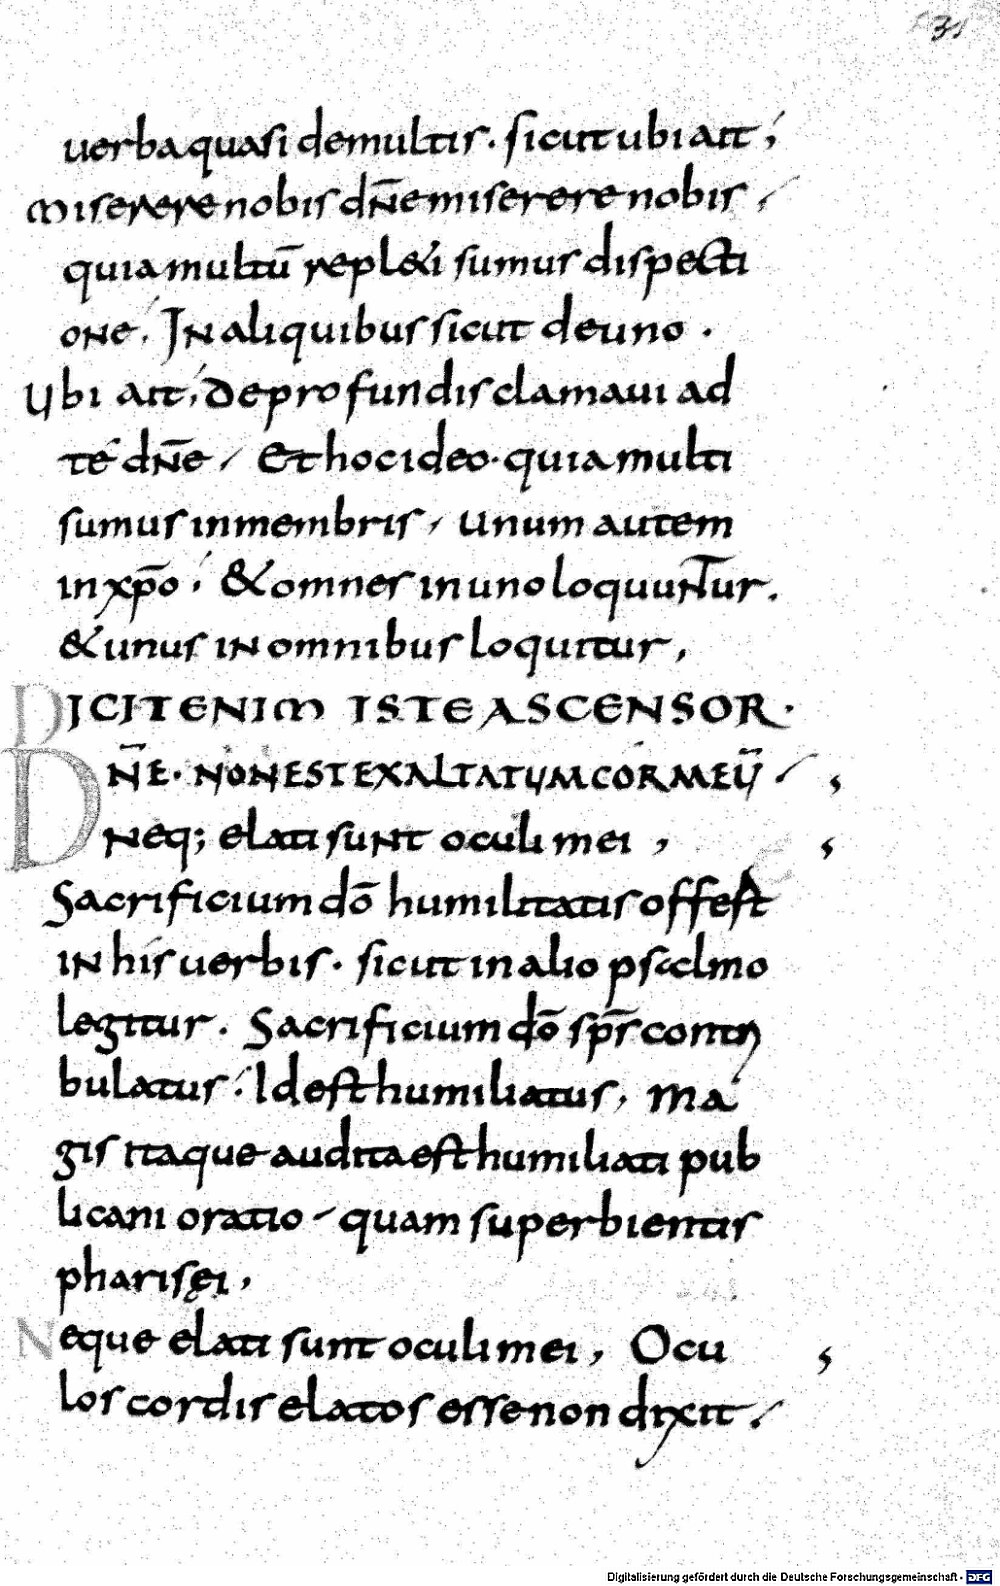 31
uerba quasi de multis. sicut ubi ait;
miserere nobis dn̄e miserere nobis
quia multū repl&i sumus dispecti
one. In aliquibus sicut de uno.
Ubi ait, De profundis clamaui ad
té dn̄e, Et hoc ideo. quia multi
sumus in membris, unum autem
in xp̄o, & omnes in uno loquuntur.
& unus in omnibus loquitur,
DICIT ENIM ISTE ASCENSOR.
DN̄E. NON EST EXALTATUM COR MEŪ
neq; elati sunt oculi mei,
Sacrificium dō humilitatis offest
in his uerbis. sicut in alio psalmo
legitur. Sacrificium dō sp̄s contri
bulatus. Id est humiliatus, ma
gis itaque audita est humiliati pub
licani oratio, quam superbientis
pharisęi,
Neque elati sunt oculi mei, Ocu
los cordis elatos esse non dixit,
Digitalisierung gefördert durch die Deutsche Forschungsgemeinschaft - DFG